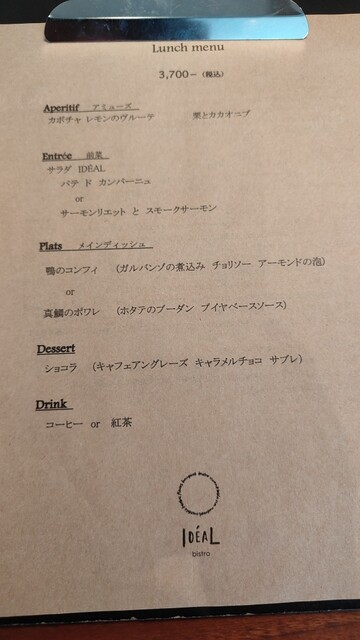 Lunch menu
3,700-（税込）
Aperitif　アミューズ
カボチャ レモンのヴルーテ　　栗とカカオニブ
Entrée　前菜
サラダ IDÉAL
パテ ド カンパーニュ
or
サーモンリエット と スモークサーモン
Plats　メインディッシュ
鴨のコンフィ　（ガルバンゾの煮込み チョリソー アーモンドの泡）
or
真鯛のポワレ　（ホタテのブーダン ブイヤベースソース）
Dessert
ショコラ　（キャフェアングレーズ キャラメルチョコ サブレ）
Drink
コーヒー or 紅茶
IDÉAL
bistro